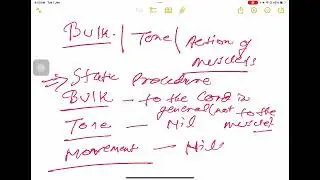 Bulk | Tone | Action of
muscles
Static Procedure
Bulk - to the Cord in
general (not to the
muscle)
Tone - Nil
Movement - Nil